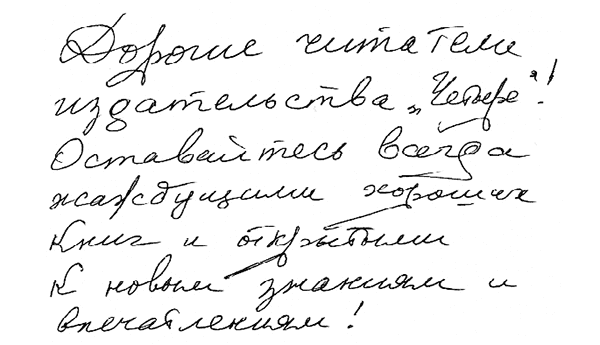 Дорогие читатели
издательства „Четыре“!
Оставайтесь всегда
жаждущими хороших
книг и открытыми
к новым знаниям и
впечатлениям!